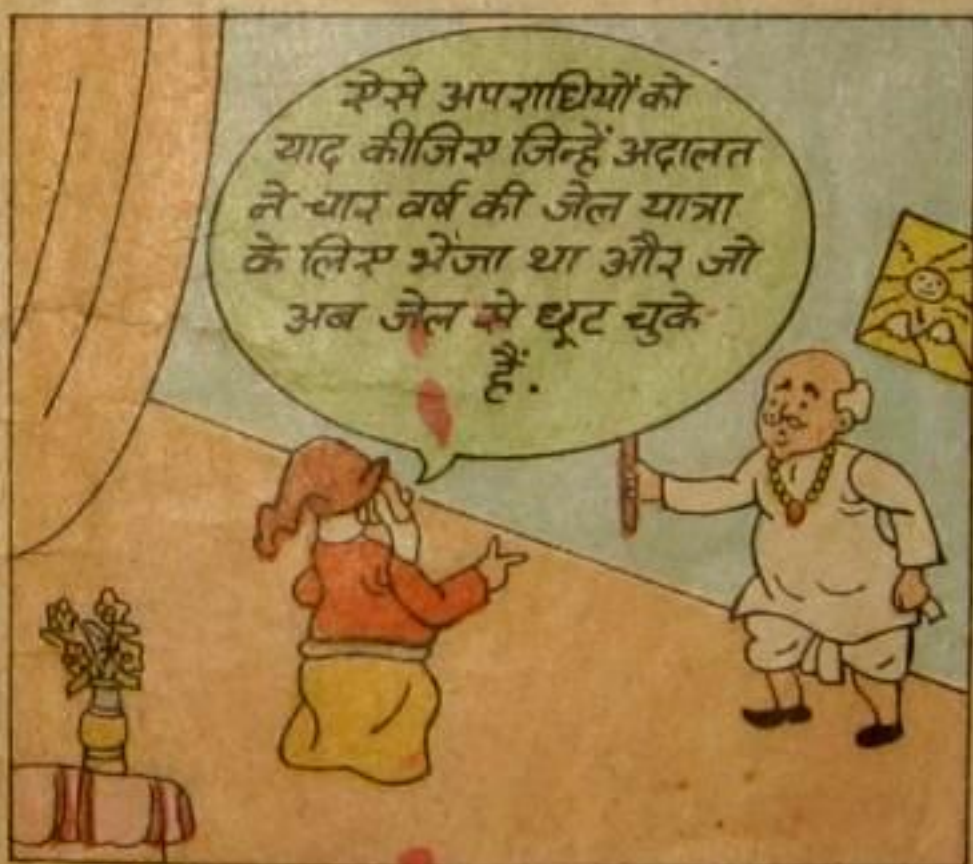 ऐसे अपराधियों को
याद कीजिए जिन्हें अदालत
ने चार वर्ष की जेल यात्रा
के लिए भेंजा था और जो
अब जेल से छूट चुके
हैं.